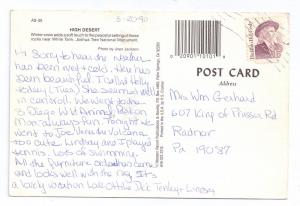 AS-35
3-20-90
HIGH DESERT
Winter snow adds a soft touch to the peaceful setting of these
rocks near White Tank, Joshua Tree National Monument.
Photo by Joan Jackson
Hi Sorry to hear the weather
has been wet & cold. Her has
been beautiful. Talked Holly
today (Tues) She seemed well
in control. We went to San
Diego Wild Animal Park on
Mon always fun. Tonight we
went to Joe Versus the Volcano
too cute. Lindsay and I play
tennis. Lots of swimming.
All the furniture
and looks well with the rug. Its
a lovely vacation Love Dee Tenley + Lindsay
POST CARD
Address
Ms Wm Gerhard
607 King of Prussia Rd
Radnor
Pa 19087